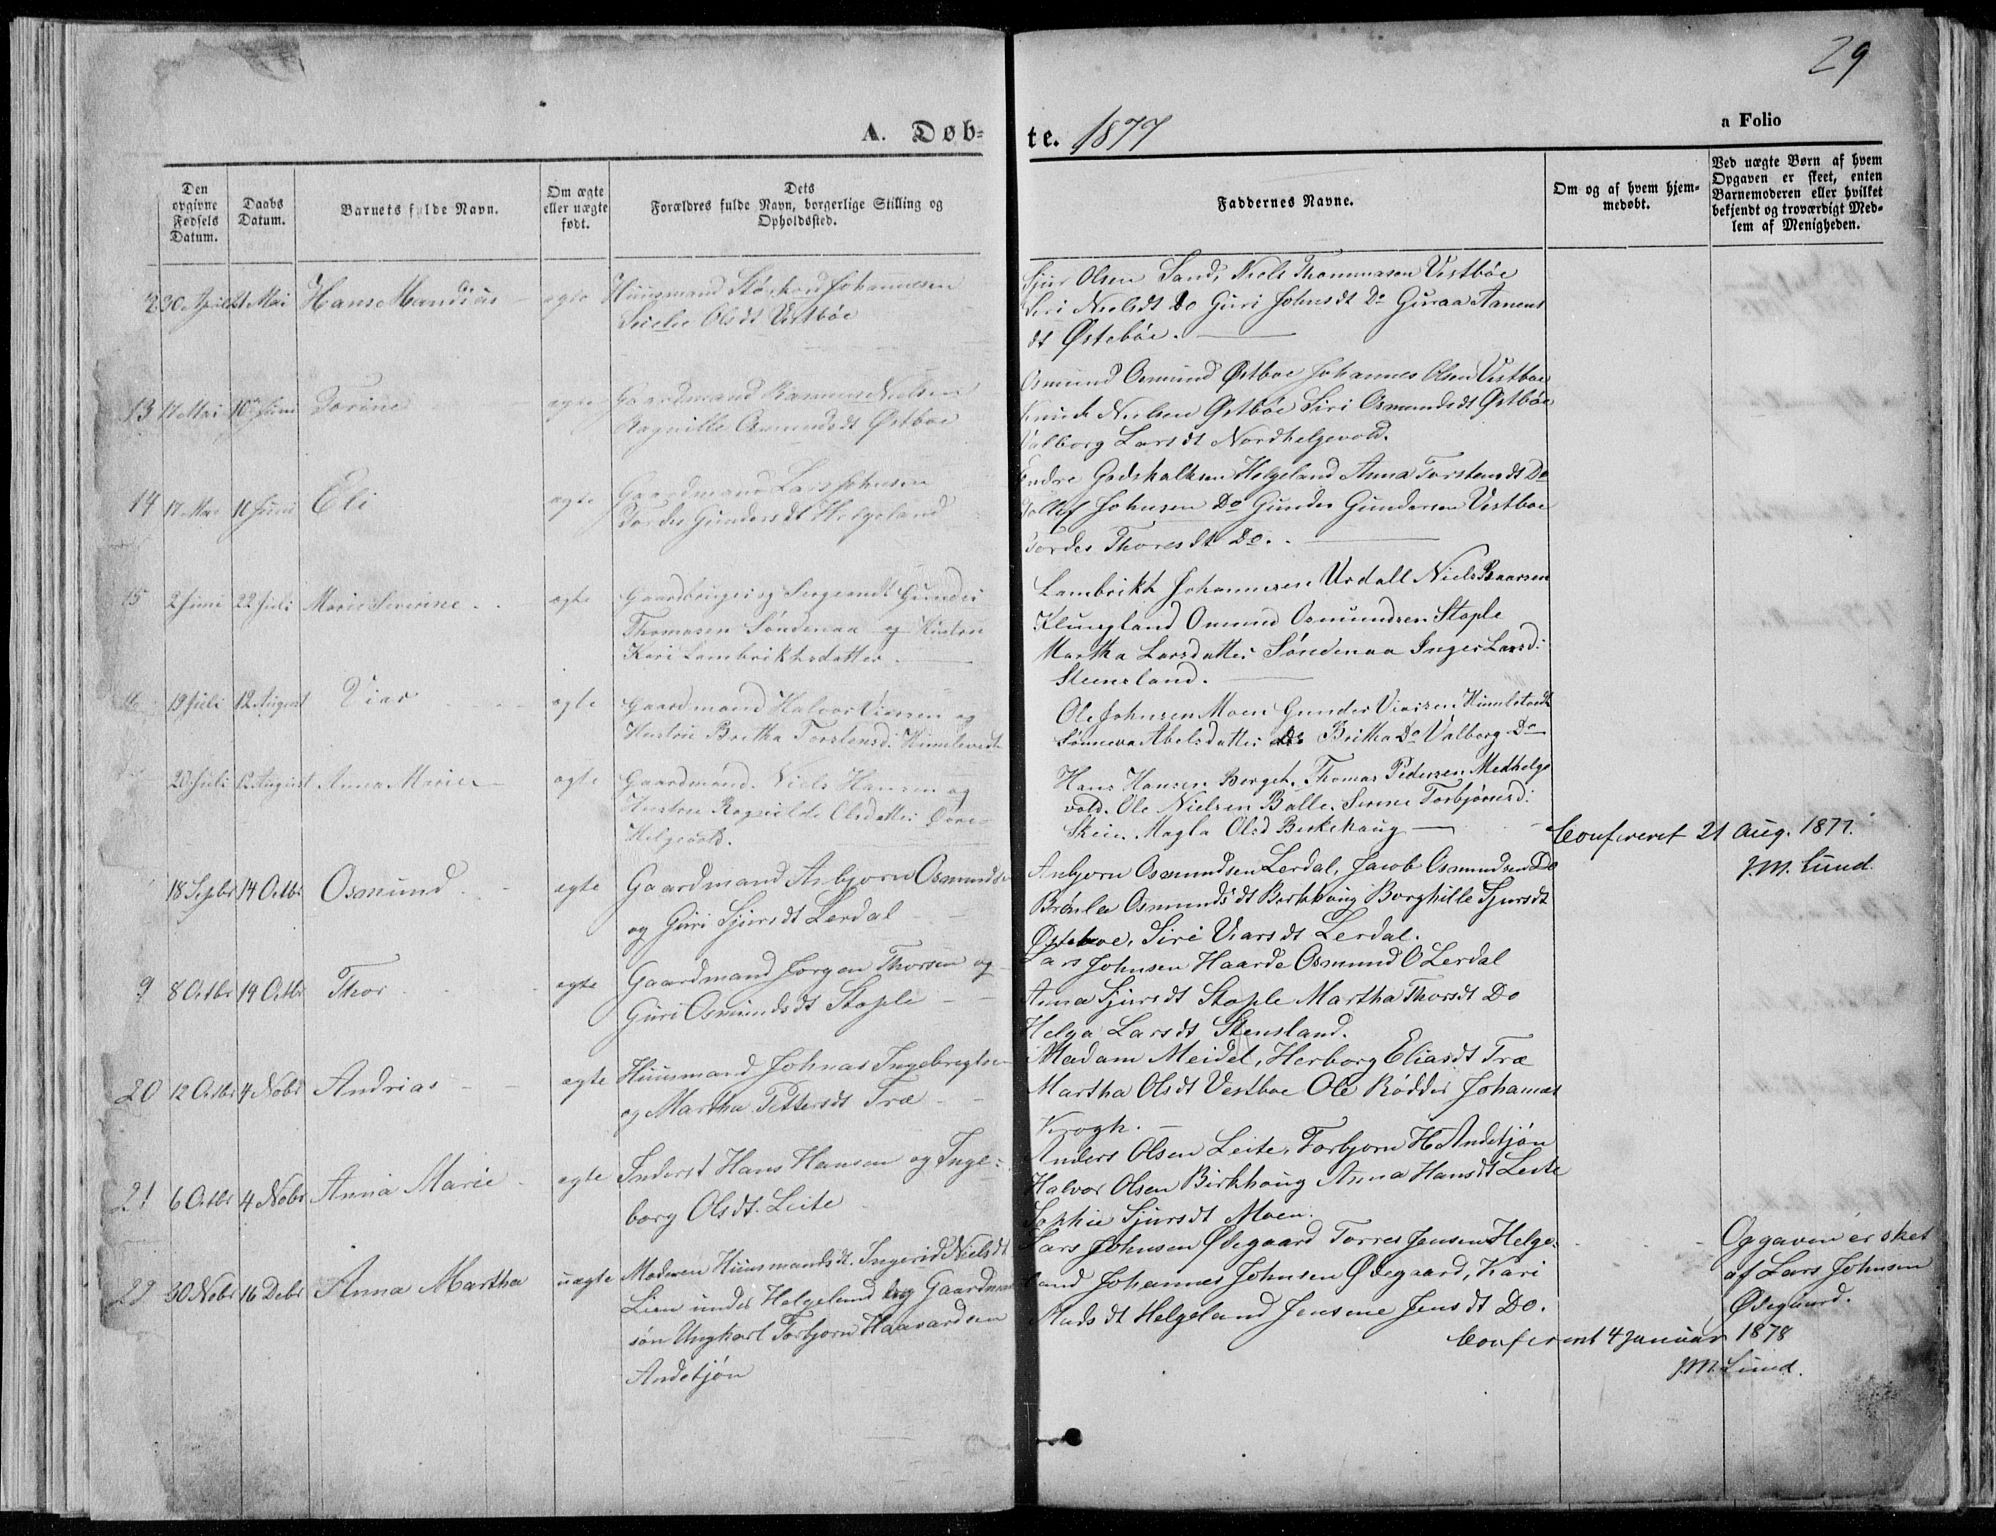 29
A. Døb-
te. 1877
a Folio
Den opgivne Fødsels Datum.
Daabs Datum.
Barnets fulde Navn.
Om ægte eller uægte født.
Dets Forældres fulde Navn, borgerlige Stilling og Opholdssted.
Faddernes Navne.
Om og af hvem hjemmedøbt.
Ved uægte Børn af hvem Opgaven er skeet, enten Barnemoderen eller hvilket bekjendt og troværdigt Medlem af Menigheden.
30 April 21 Mai Hans Mandius ægte Huusmand Johannesen
Olsdt Vestbøe
Sjur Olsen Sand, Niels Thommasen Vestbøe
Siri Nielsdt Do Guri Johnsdt Do Guraa Aanens
dt Østebøe.
13 17 Mai 10 Juni Torine ægte Gaardmand Rasmus Nielsen
Ragnille Osmundsdt Østboe
Osmund Osmund Østboe Johannes Olsen Vestboe
Knud Nielsen Østbøe Siri Osmundsdt Østbøe
Valborg Larsdt Nordhelgevold.
14 17 Mai 10 Juni Eli ægte Gaardmand Lars Johnsen
Tordes Gundersdt Helgeland
Endre Godskalksen Helgeland Anna Torstensdt Do
Tollef Johnsen Do Gunder Gundersen Vestboe
Tordes Thoresdt Do.
15 2 Juni 22 Juli Marie Severine ægte Gaardbruger og Sergeandt Gunder
Thomasen Søndenaa og Hustru
Kari Lambrikhsdatter.
Lambrikh Johannesen Urdall Niels Baarsen
Klungland Omund Osmundsen Stople
Martha Larsdatter Søndenaa Inger Larsd:
Steensland.
19 Juli 12 August Viar ægte Gaardmand Halvor Viarsen og
Hustru Britha Torstensd.
Ole Johnsen Moen Gunder Viarsen
Abelsdatter Do Britha Do Valborg Do
12 August Anna Marie ægte Gaardmand Niels Hansen og
Hustru Ragnilde Olsdatter
Helgevold.
Hans Hansen Berget, Thomas Pedersen Medhelge
vold. Ole Nielsen Balle, Serine Torbjørnsd:
Skeie Magla Olsd Birkehaug
Confereret 21 Aug. 1877.
J.M. Lund.
18 Septbr 14 Octbr Osmund ægte Gaardmand Asbjørn Osmundsen
og Guri Sjursdt Lerdal
Asbjørn Osmundsen Lerdal, Jacob Osmundsen Do
Osmundsdt Birkhoug Borghille Sjursdt
Østeboe, Siri Viarsdt Lerdal.
9 8 Octbr 14 Octbr Thor ægte Gaardmand Jørgen Thorsen og
Guri Osmundsdt Stople
Lars Johnsen Haarde Osmund O Lerdal
Anna Sjursdt Stople Martha Thorsdt Do
Helga Larsdt Stensland.
20 12 Octbr 4 Nobr Andrias ægte Huusmand Johnas Ingebregtsen
og Martha Pettersdt Træ
Madam Meidel, Herborg Eliasdt Træ
Martha Olsdt Vestboe Ole Rødder Johannes
Krogh.
21 6 Octbr 4 Nobr Anna Marie ægte Inderst Hans Hansen og Inge-
borg Olsdt. Leite
Anders Olsen Leite, Torbjørn H Andetjøn
Halvor Olsen Birkhoug Anna Hansdt Leite
Sophie Sjursdt Moen.
22 30 Nobr 16 Debr Anna Martha uægte Moderen Huusmandsdt. Ingerid Nielsdt
Lien under Helgeland og Gaardmand
søn Ungkarl Torbjørn Haavardsen
Andetjøn
Lars Johnsen Ødegaard Torres Jensen Helge-
land Johannes Johnsen Ødegaard, Kari
Madsdt Helgeland Jensine Jensdt Do.
Opgaven er sket
af Lars Johnsen
Ødegaard.
Confereret 4 Januar 1878
J.M. Lund.